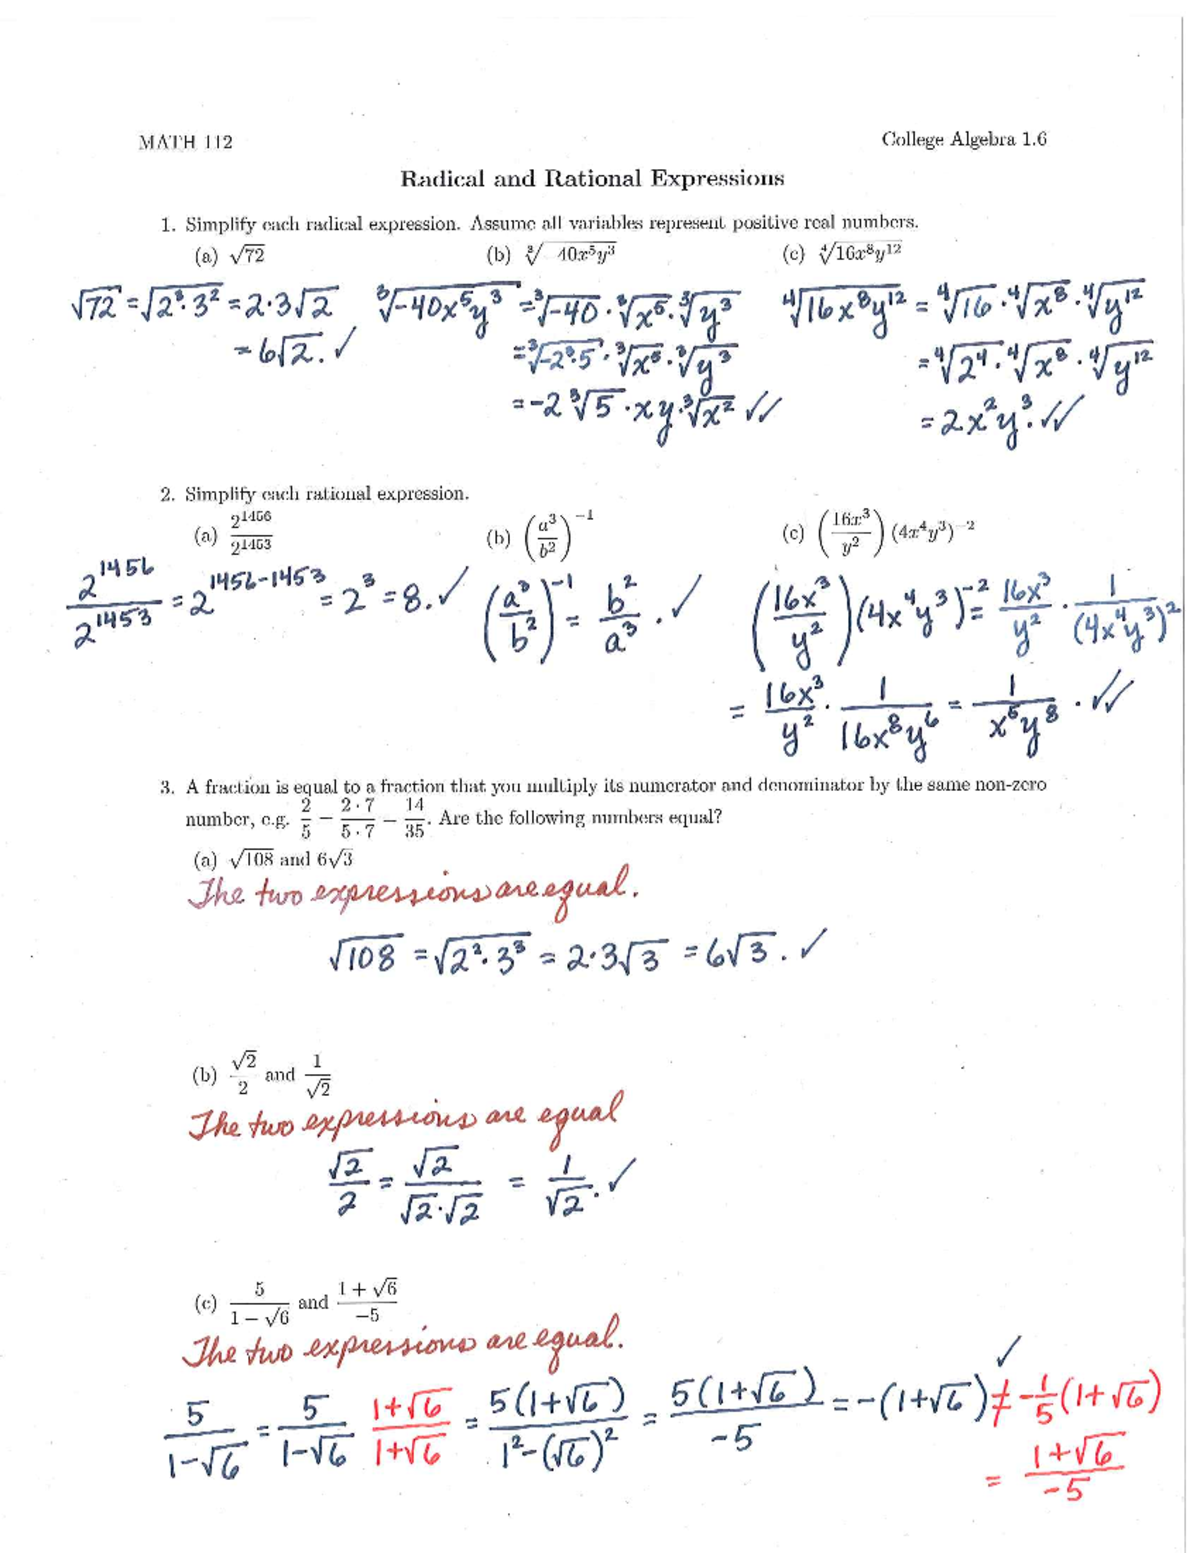 MATH 112 College Algebra 1.6
Radical and Rational Expressions
1. Simplify each radical expression. Assume all variables represent positive real numbers.
(a) √72 (b) ∛40x⁵y³ (c) ∜16x⁸y¹²
√72 = √2³·3² = 2·3√2 ∛-40x⁵y³ = ∛-40 · ∛x⁵ · ∛y³ ∜16x⁸y¹² = ∜16 · ∜x⁸ · ∜y¹²
= 6√2. ✓ = ∛-2³·5 · ∛x⁵ · ∛y³ = ∜2⁴ · ∜x⁸ · ∜y¹²
= -2∛5 · xy · ∛x² ✓✓ = 2x²y³. ✓✓
2. Simplify each rational expression.
(a) 2¹⁴⁵⁶/2¹⁴⁵³ (b) (a³/b²)⁻¹ (c) (16x³/y²)(4x⁴y³)⁻²
2¹⁴⁵⁶/2¹⁴⁵³ = 2¹⁴⁵⁶⁻¹⁴⁵³ = 2³ = 8. ✓ (a³/b²)⁻¹ = b²/a³. ✓ (16x³/y²)(4x⁴y³)⁻² = 16x³/y² · 1/(4x⁴y³)²
= 16x³/y² · 1/16x⁸y⁶ = 1/x⁵y⁸. ✓✓
3. A fraction is equal to a fraction that you multiply its numerator and denominator by the same non-zero
number, e.g. 2/5 = 2·7/5·7 = 14/35. Are the following numbers equal?
(a) √108 and 6√3
The two expressions are equal.
√108 = √2²·3³ = 2·3√3 = 6√3. ✓
(b) √2/2 and 1/√2
The two expressions are equal
√2/2 = √2/√2·√2 = 1/√2. ✓
(c) 5/1-√6 and 1+√6/-5
The two expressions are equal. ✓
5/1-√6 = 5/1-√6 1+√6/1+√6 = 5(1+√6)/1²-(√6)² = 5(1+√6)/-5 = -(1+√6) ≠ -1/5(1+√6)
= 1+√6/-5